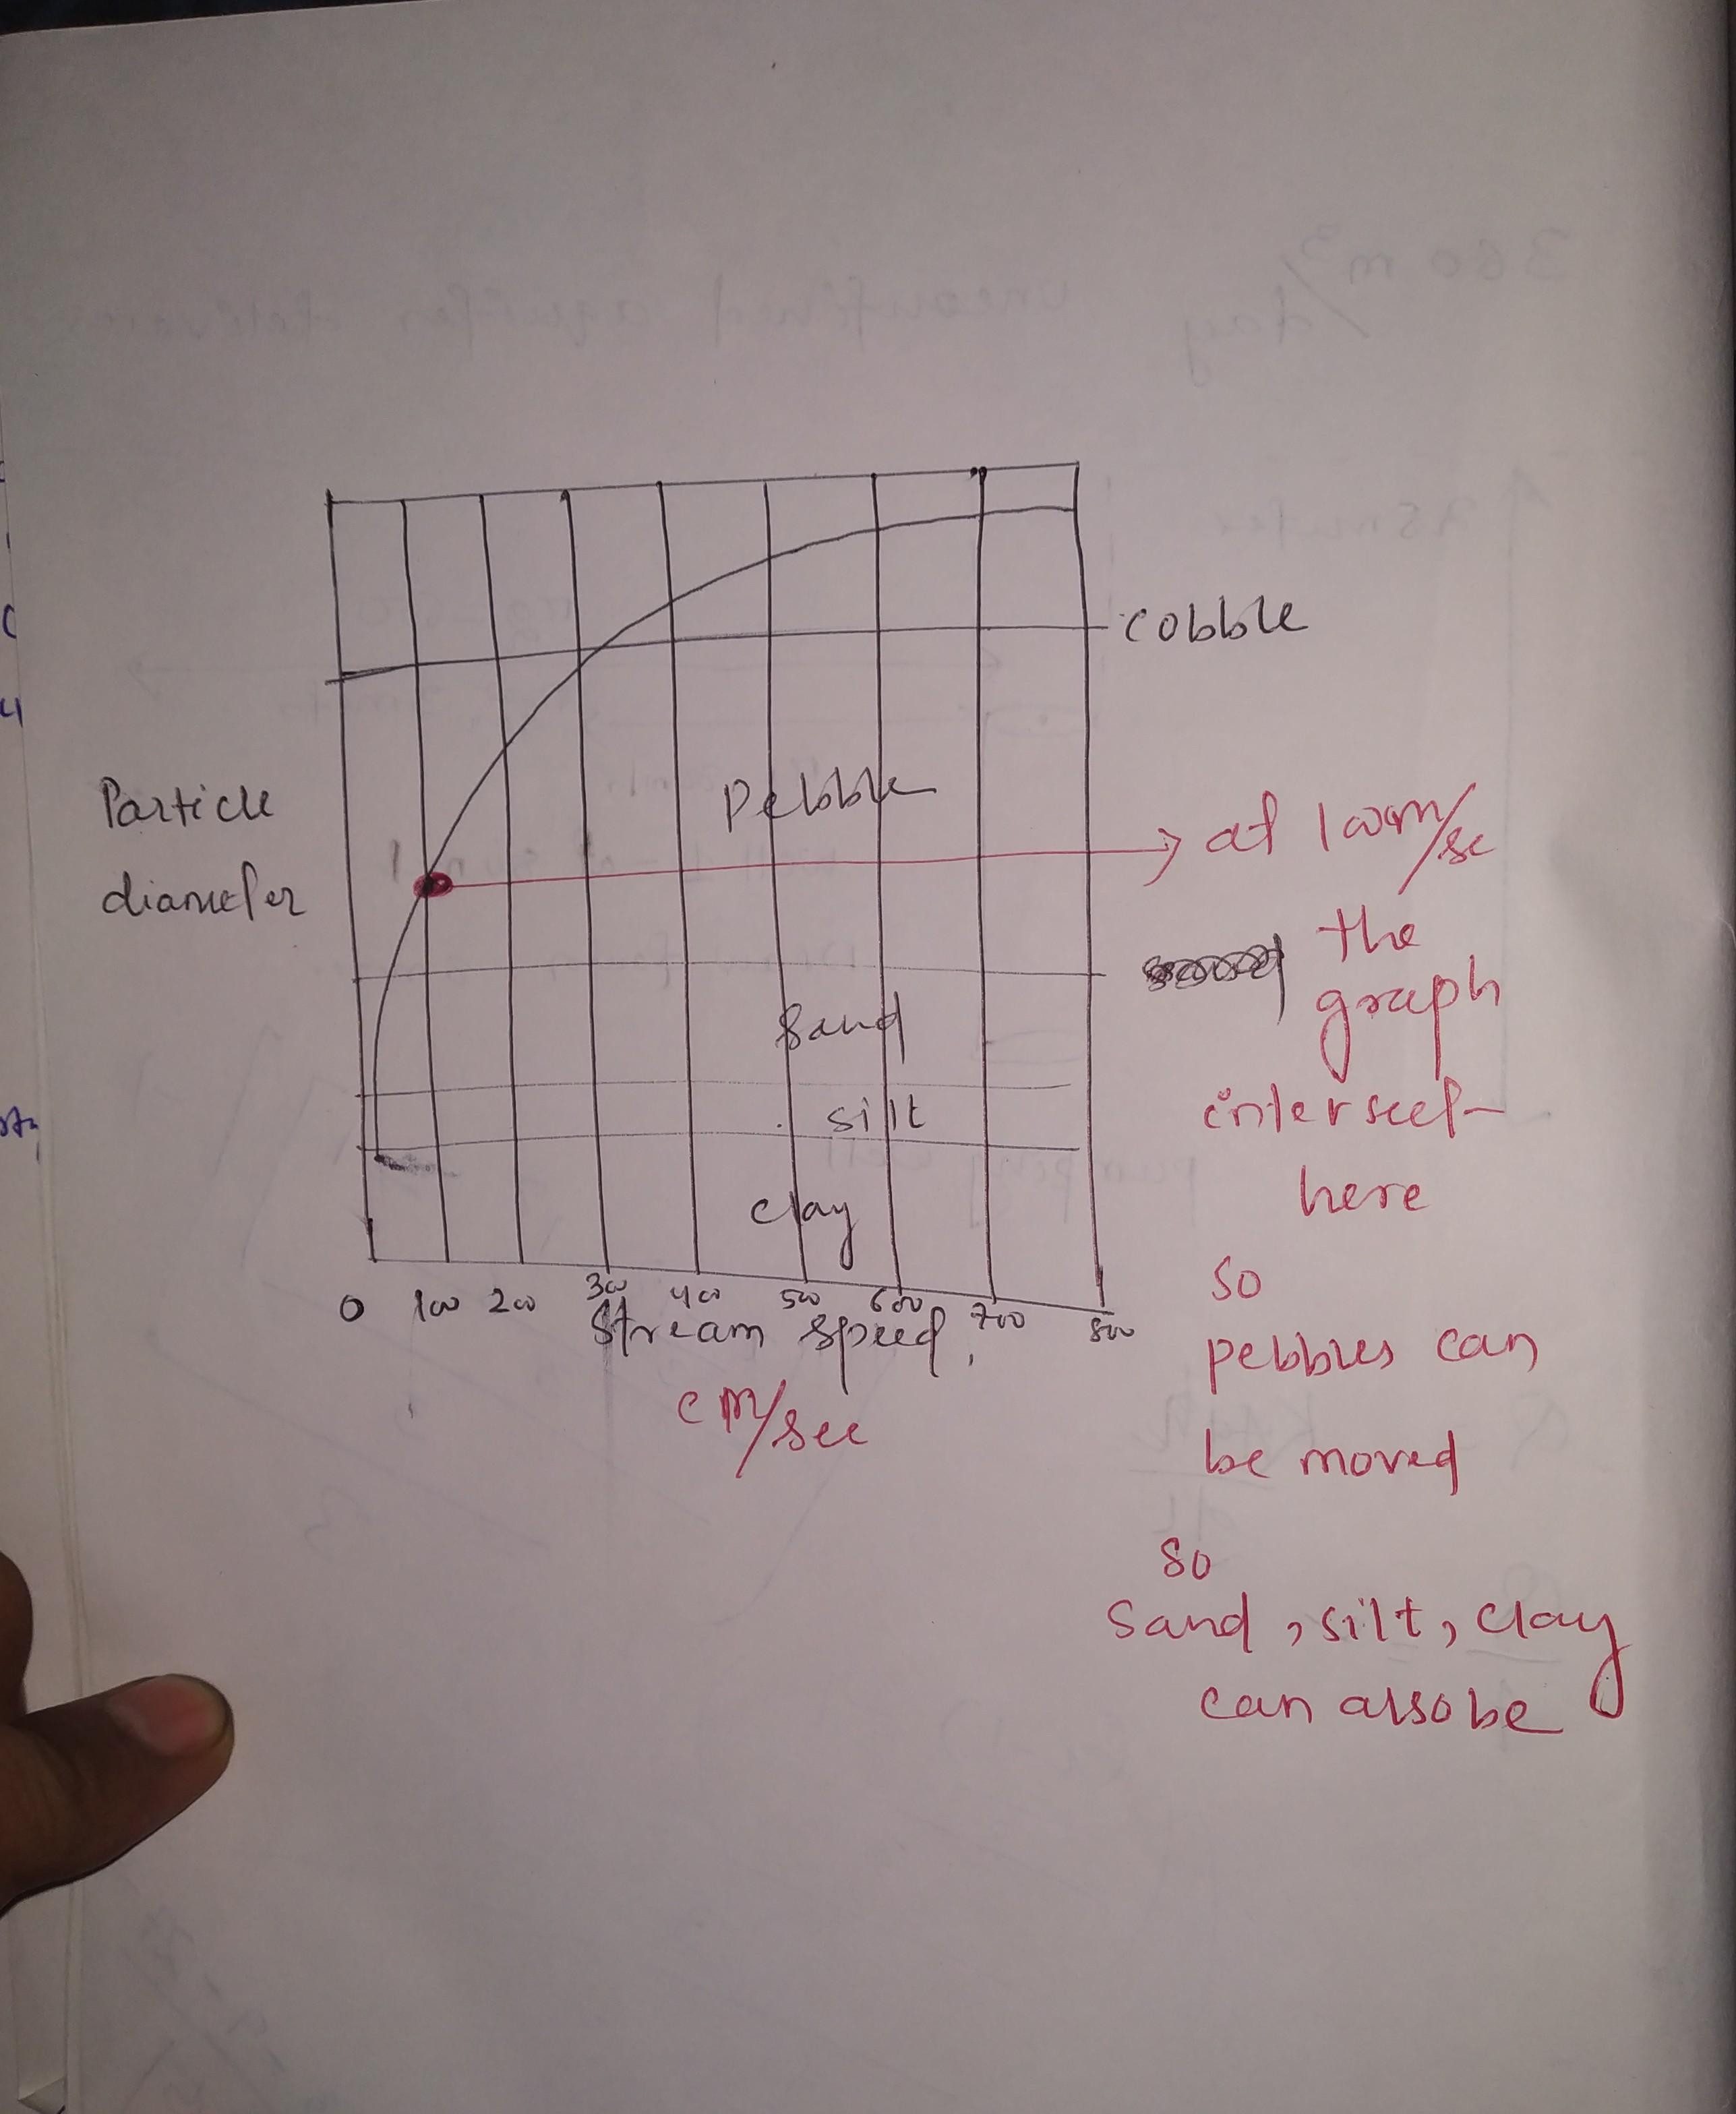 cobble
Pebble
Particle
diameter
at 100cm/sc
the
graph
intersect
here
Sand
silt
clay
0 100 200 300 400 500 600 700 800
Stream speed
cm/sec
so
pebbles can
be moved
so
Sand, silt, clay
can also be